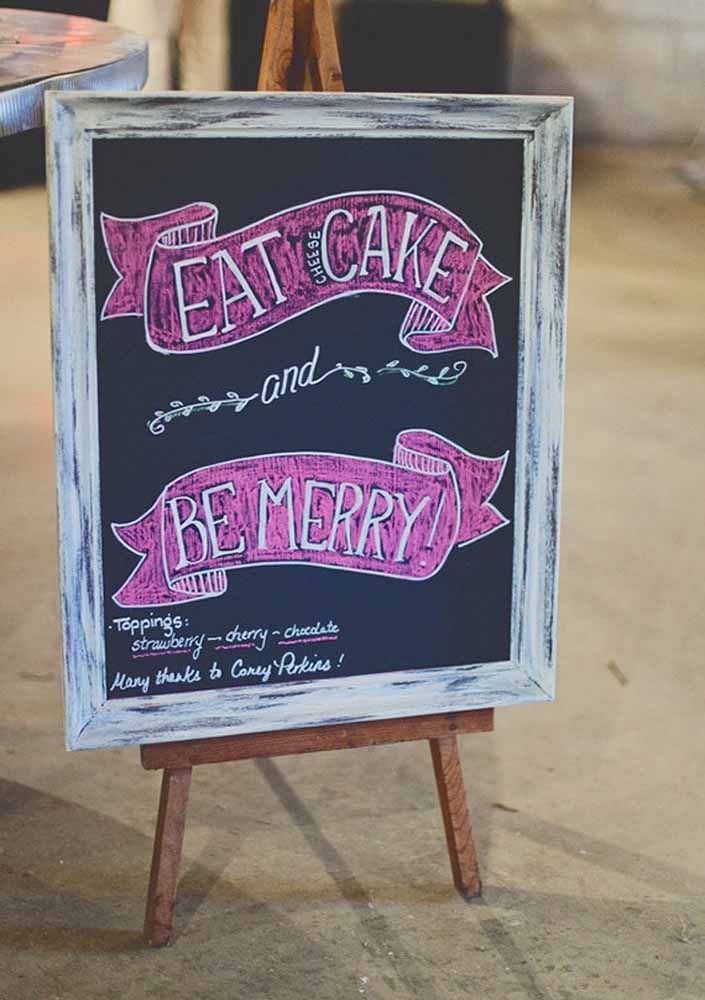 EAT CHEESE CAKE
and
BE MERRY!
Toppings:
strawberry - cherry - chocolate
Many thanks to Corey Perkins!